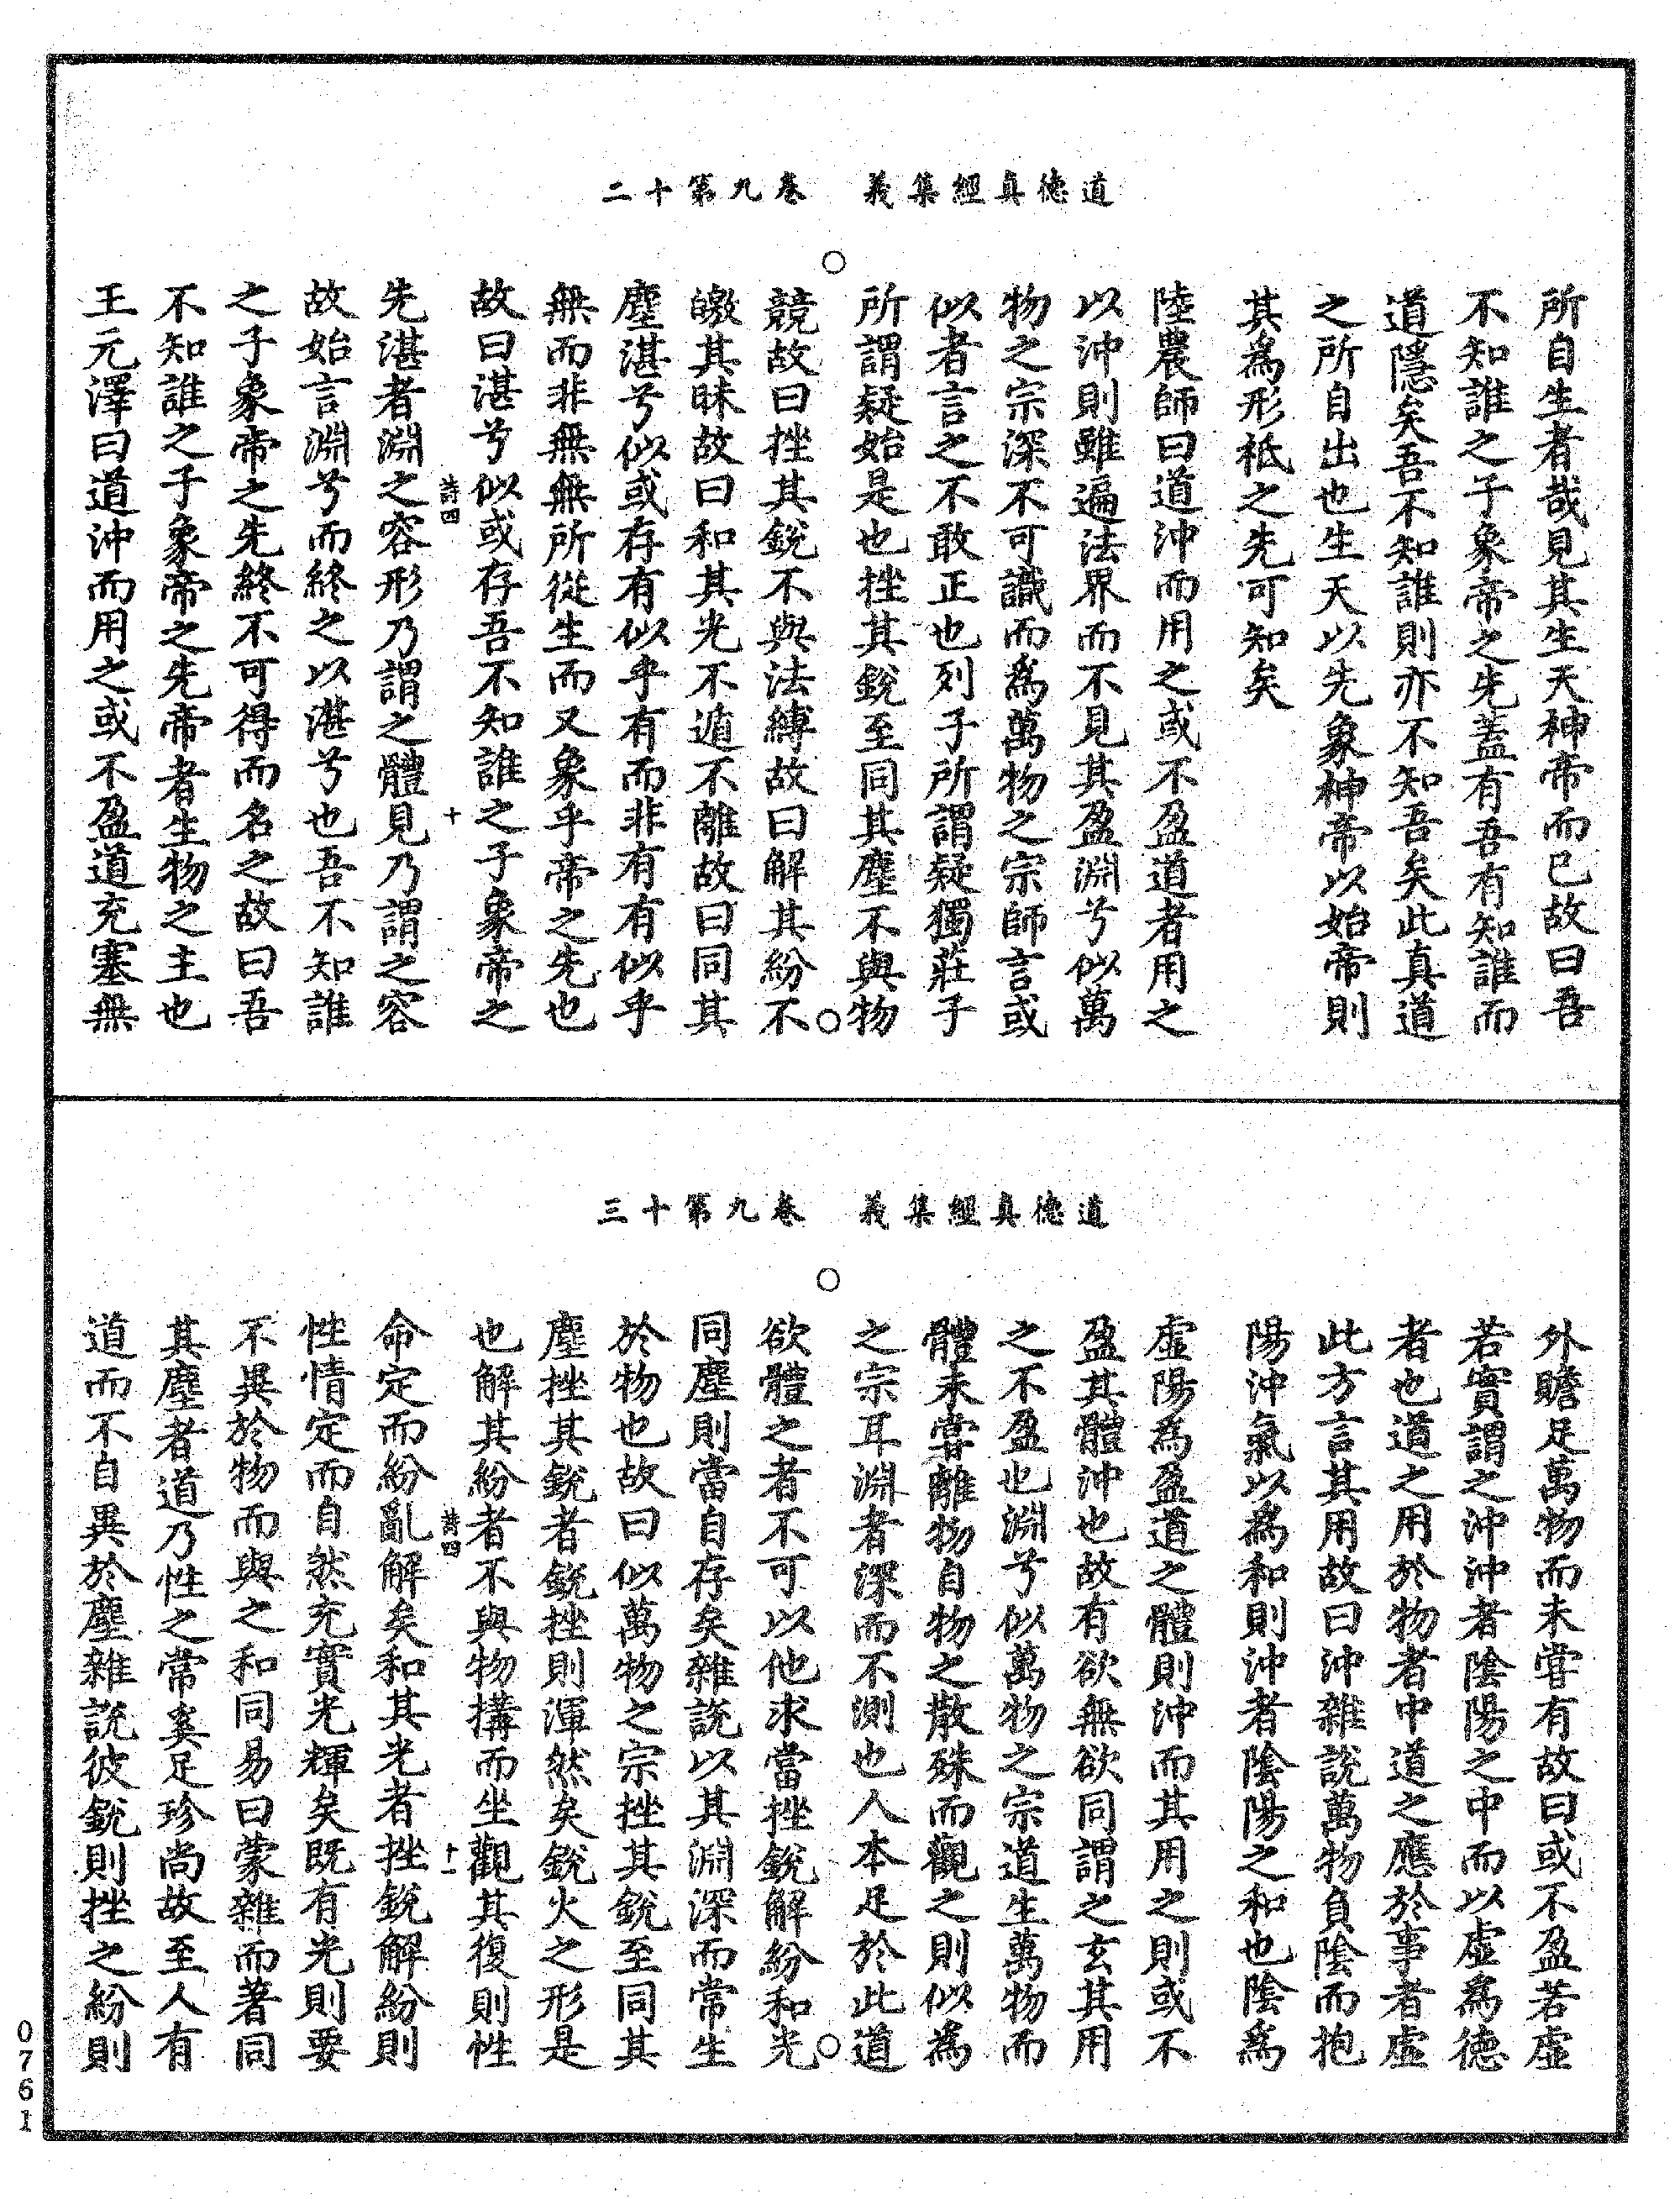 道德真經集義　卷九第十二
所自生者哉見其生天神帝而已故曰吾
不知誰之子象帝之先蓋有吾有知誰而
道隱矣吾不知誰則亦不知吾矣此真道
之所自出也生天以先象神帝以始帝則
其為形祗之先可知矣
陸農師曰道沖而用之或不盈道者用之
以沖則雖遍法界而不見其盈淵兮似萬
物之宗深不可識而為萬物之宗師言或
似者言之不敢正也列子所謂疑獨莊子
所謂疑始是也挫其銳至同其塵不與物
競故曰挫其銳不與法縛故曰解其紛不
皦其昧故曰和其光不遁不離故曰同其
塵湛兮似或存有似乎有而非有有似乎
無而非無無所從生而又象乎帝之先也
故曰湛兮似或存吾不知誰之子象帝之
彼四　十
先湛者淵之容形乃謂之體見乃謂之容
故始言淵兮而終之以湛兮也吾不知誰
之子象帝之先終不可得而名之故曰吾
不知誰之子象帝之先帝者生物之主也
王元澤曰道沖而用之或不盈道充塞無
道德真經集義　卷九第十三
外贍足萬物而未嘗有故曰或不盈若虛
若實謂之沖沖者陰陽之中而以虛為德
者也道之用於物者中道之應於事者虛
此方言其用故曰沖雜說萬物負陰而抱
陽沖氣以為和則沖者陰陽之和也陰為
虛陽為盈道之體則沖而其用之則或不
盈其體沖也故有欲無欲同謂之玄其用
之不盈也淵兮似萬物之宗道生萬物而
體未嘗離物自物之散殊而觀之則似為
之宗耳淵者深而不測也人本足於此道
欲體之者不可以他求當挫銳解紛和光
同塵則當自存矣雜說以其淵深而常生
於物也故曰似萬物之宗挫其銳至同其
塵挫其銳者銳挫則渾然矣銳火之形是
也解其紛者不與物搆而坐觀其復則性
四　十一
命定而紛亂解矣和其光者挫銳解紛則
性情定而自然充實光輝矣既有光則要
不異於物而與之和同易曰蒙雜而著同
其塵者道乃性之常奚足珍尚故至人有
道而不自異於塵雜說彼銳則挫之紛則
0761